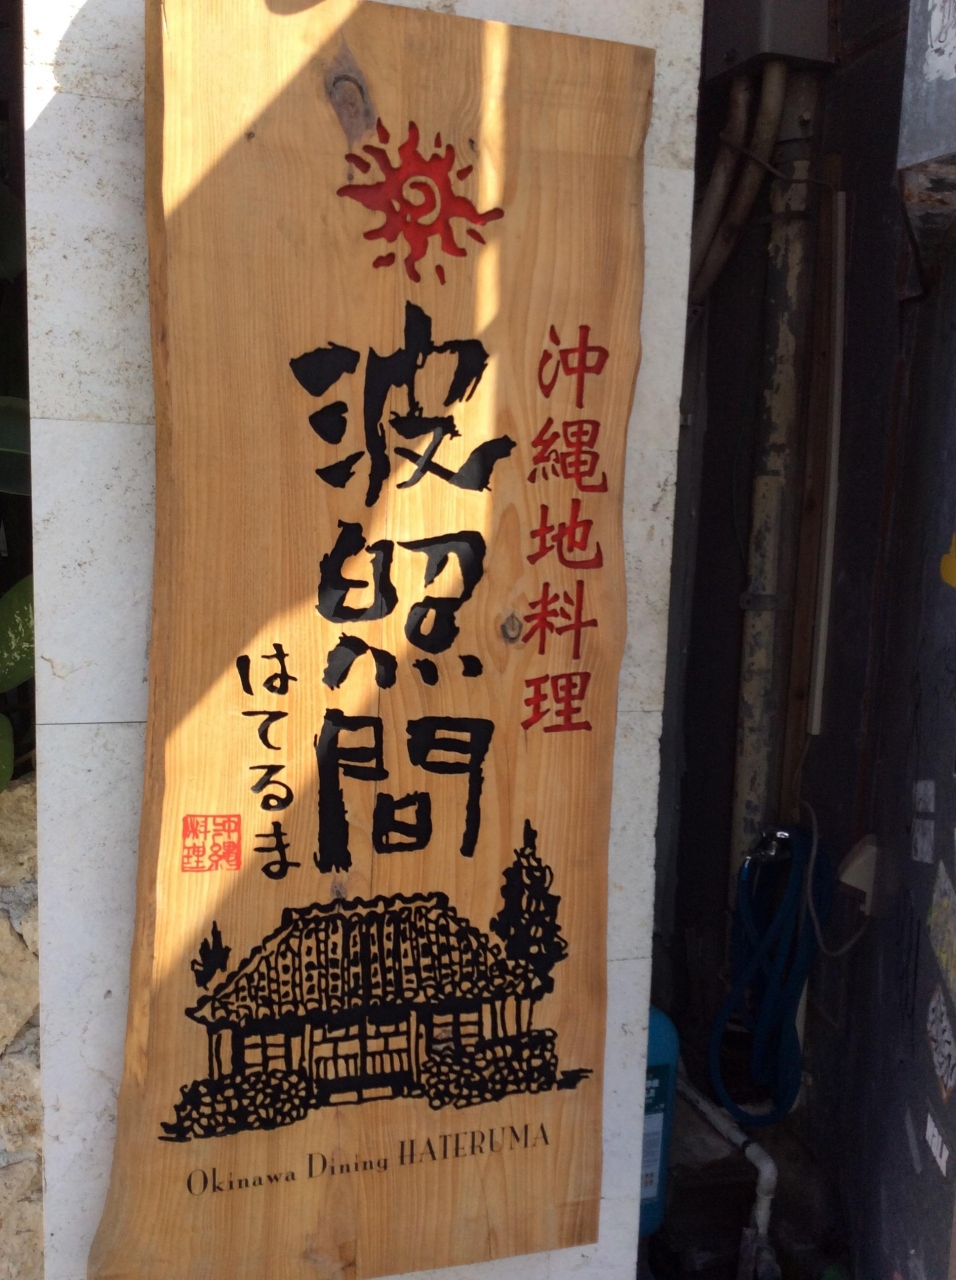 沖縄地料理
波照間
はてるま
沖縄
料理
Okinawa Dining HATERUMA